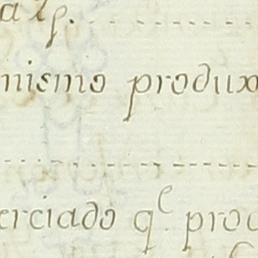 nismo produx
erciado q.^e proc